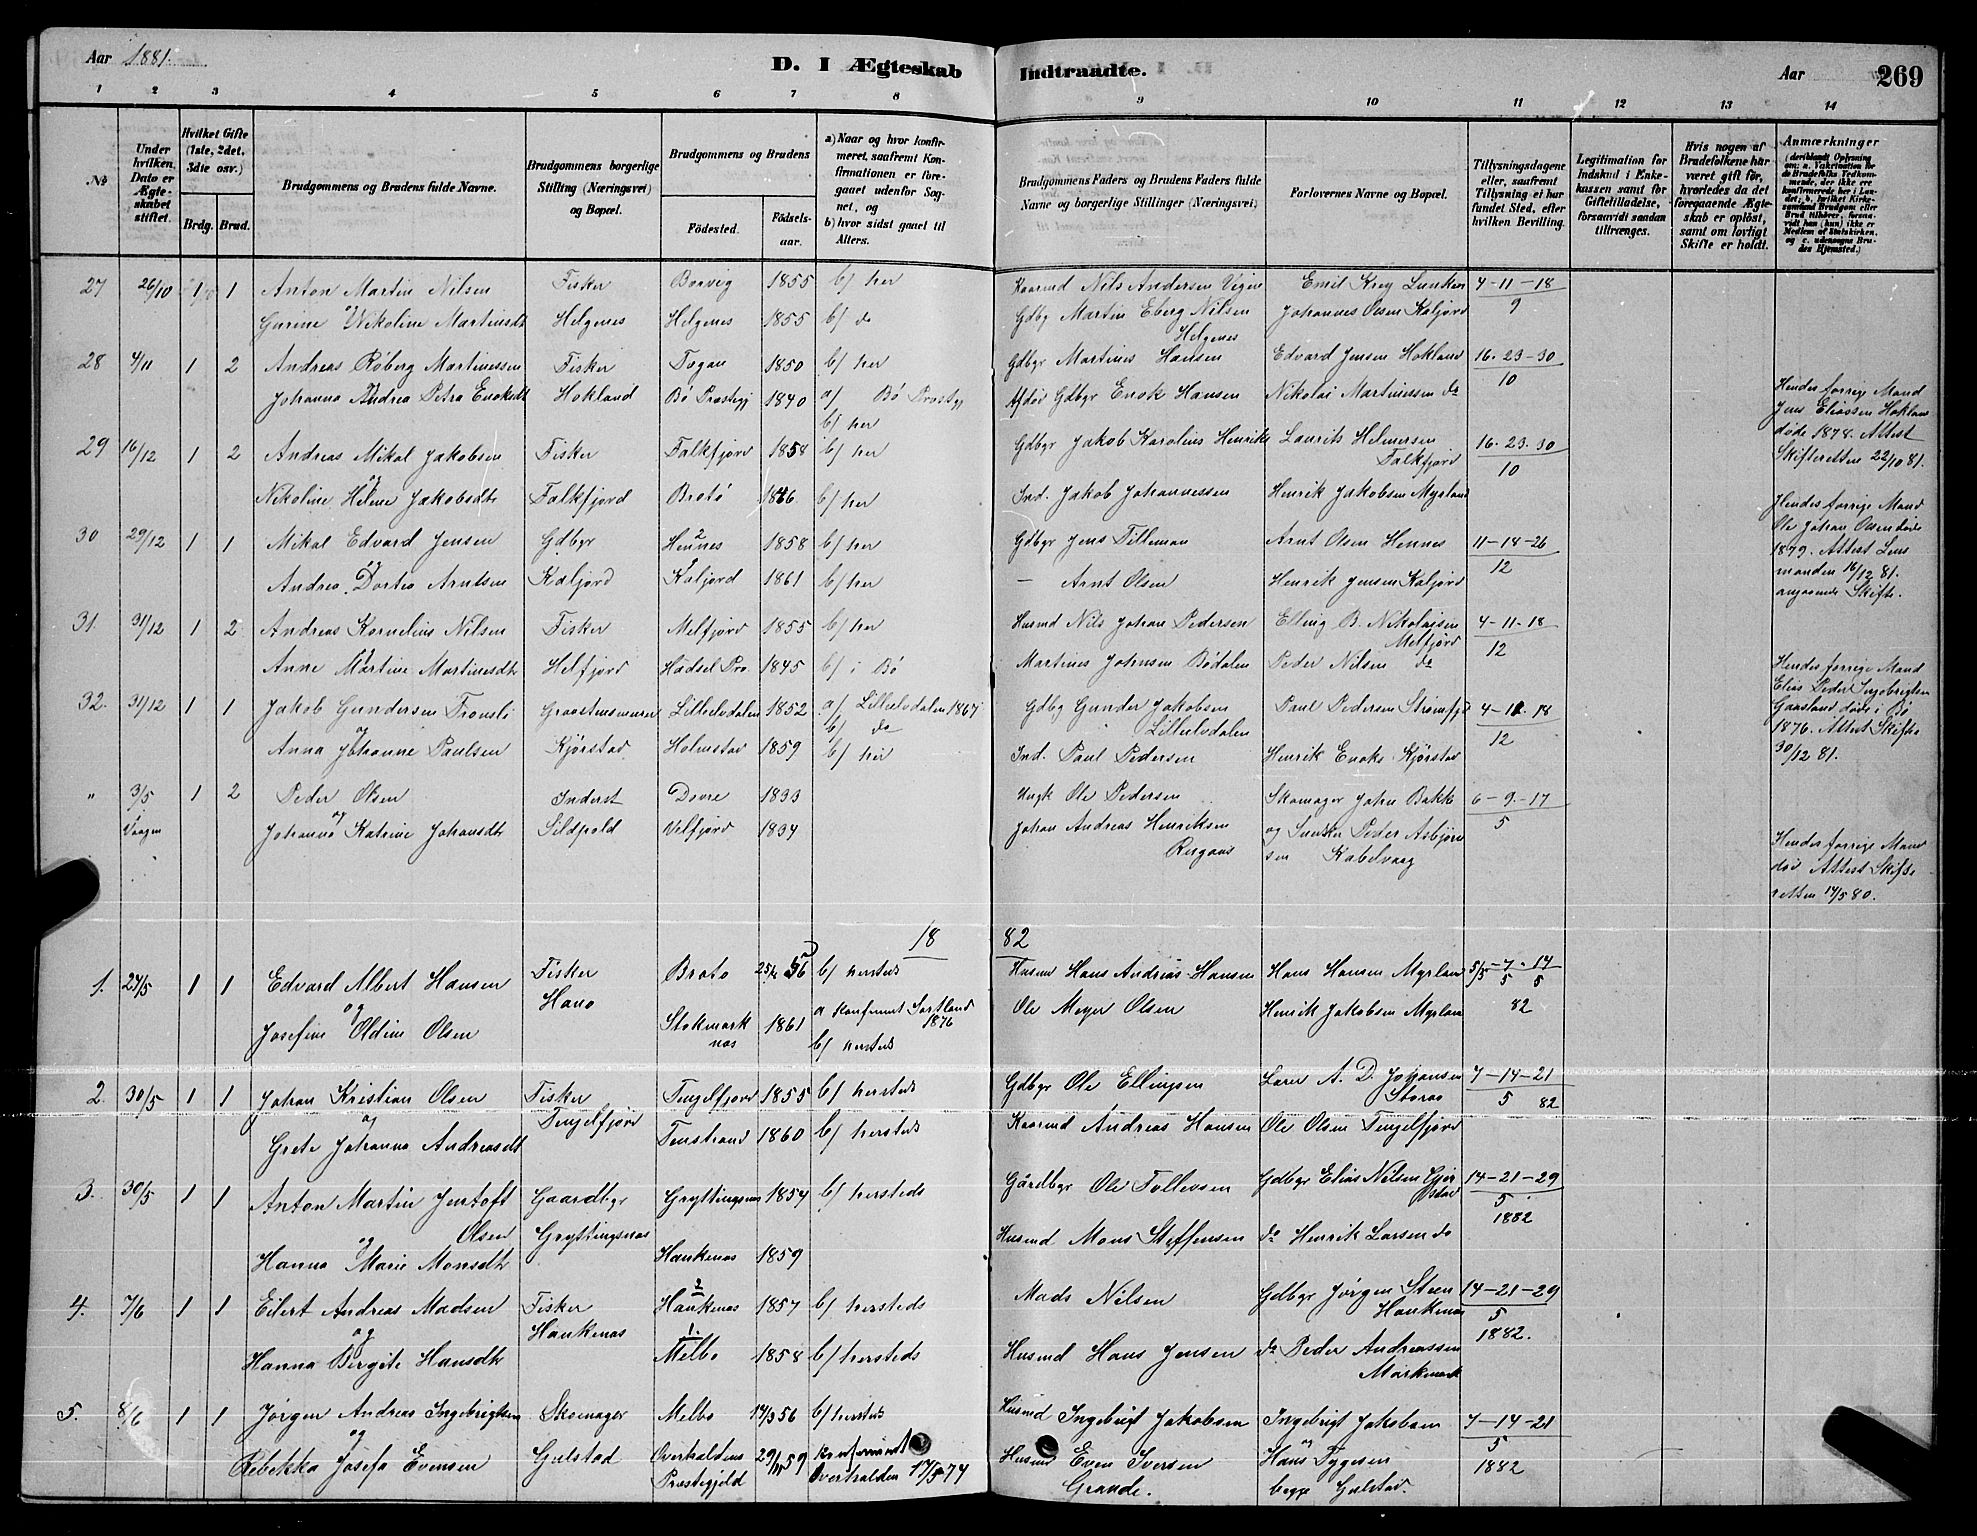 Aar 1881.
D. I Ægteskab Indtraadte.
Aar 269
1 2 3 4 5 6 7 8 9 10 11 12 13 14
№
Under hvilken Dato er Ægteskabet stiftet.
Hvilket Gifte (1ste, 2det, 3dte osv.)
Brdg. Brud.
Brudgommens og Brudens fulde Navne.
Brudgommens borgerlige Stilling (Næringsvei) og Bopæl.
Brudgommens og Brudens
Fødested. Fødselsaar.
a) Naar og hvor konfirmeret, saafremt Konfirmationen er foregaaet udenfor Sognet, og
b) hvor sidst gaaet til Alters.
Brudgommens Faders og Brudens Faders fulde Navne og borgerlige Stillinger (Næringsvei)
Forlovernes Navne og Bopæl.
Tillysningsdagene eller, saafremt Tillysning ei har fundet Sted, efter hvilken Bevilling.
Legitimation for Indskud i Enkekassen samt for Giftetilladelse, forsaavidt saadan tiltrænges.
Hvis nogen af Brudefolkene har været gift før, hvorledes da det foregaaende Ægteskab er opløst, samt om lovligt Skifte er holdt.
Anmærkninger
(deriblandt Oplysning om: a. Vakcination for de Brudefolks Vedkommende, der ikke ere konfirmerede her i Landet; b. hvilket Kirkesamfund Brudgom eller Brud tilhører, forsaavidt han (hun) ikke er Medlem af Statskirken, og c. udensogns Brudes Hjemsted.)
27 26/10 1 1 Anton Martin Nilsen Fisker Borvig 1855 b/ her Kaarmd Nils Andersen Emil Krey Lunken 4-11-18
og
Gurine Nikoline Martinsdt Helgenes Helgenes 1855 b/ do Gdbg Martin Eberg Nilsen Johannes Olsen Kaljord 9
Helgenes
28 4/11 1 2 Andreas Røberg Martinussen Fisker 1850 b/ her Gdbgr Martines Hansen Edvard Jensen Hokland 16-23-30
Johanna Andrea Petra Enoksdt Hokland Bø Præstegj 1840 a/ Bø Præstegj Afdøv Gdbgr Enok Hansen Nikolai Martinussen do 10
b/ her
Hendes forrige Mand Jens Eliassen Hokland døde 1878. Attest Skifteretten 22/10 81.
29 16/12 1 2 Andreas Mikal Jakobsen Fisker Falkfjord 1858 b/ her Gdbgr Jakob Karolius Henriks Laurits Helmersen 16-23-30
Falkfjord 10
og
Nikoline Heline Jakobsdt Falkfjord Brotø 1846 b/ her Ind. Jakob Johannessen Henrik Jakobsen Myrland
Hendes forrige Mand Ole Johan Olsen døde 1879. Attest Lensmanden 16/12 81. angaaende Skifte.
30 29/12 1 1 Mikal Edvard Jensen Gdbgr Hennes 1858 b/ her Gdbgr Jens Tilleman Arnt Olsen Hennes 11-18-26
og 12
Andrea Dortea Arntsen Kaljord Kaljord 1861 b/ her — Arnt Olsen Henrik Jensen Kaljord
31. 31/12 1 2 Andreas Kornelius Nilsen Fisker Melfjord 1855 b/ her Husmd Nils Johan Pedersen Elling B. Nikolaisen 4-11-18
Melfjord 12
Anne Martine Martinusdt Melfjord Hadsel Pro 1845 b/ i Bø Martines Johnsen Bødalen Peder Nilsen do
Hendes forrige Mand Elias Peder Ingebrigtsen Gaasland døde i Bø 1876. Attest Skifte 30/12 81.
32. 31/12 1 1 Jakob Gundersen Tronsli Graastensmurer Lilleelvdalen 1852 a/ Lilleelvdalen 1867 Gdbg Gunder Jakobsen Paul Pedersen Strømfjd 4-11-18
b/ do Lilleelvdalen 12
og
Anna Johanne Paulsen Kjørstad Holmstad 1859 b/ her Ind. Paul Pedersen Henrik Enoks Kjørstad
" 3/5 1 2 Peder Olsen Inderst Dovre 1833 Ungk Ole Pedersen Skomager John Bakke 6-9-17
i Vaagen og 5
Johanna Katrine Johansdt Sildpold Velfjord 1834 Johan Andreas Henriksen og Snedker Peder Asbjørnsen Kabelvaag
Hendes forrige Mand død Attest Skifteretten 14/5 80.
18 82
1. 24/5 1 1 Edvard Albert Hansen Fisker Brotø 25/2 56 b/ hersteds Husmd Hans Andreas Hansen Hans Hansen Myrland 5/5-7-14
og Hano 5 5
Josefine Oldine Olsen Stokmarknæs 1861 a konfirmert Sortland 1876 Ole Meyer Olsen Henrik Jakobsen Myrland 82
b/ hersteds
2. 30/5 1 1 Johan Kristian Olsen Fisker Tengelfjord 1855 b/ hersteds Gdbgr Ole Ellingsen Lærer A. D. Johansen 7-14-21
og Tengelfjord Storaa 5 82
Grete Johanna Andreasdt Tenstrand 1860 b/ hersteds Kaarmd Andreas Hansen Ole Olsen Tengelfjord
3. 30/5 1 1 Anton Martin Jentoft Gaardbgr Gryttingsnæs 1854 b/ hersteds Gårdbgr Ole Tollevsen Gdbgr Elias Nilsen 14-21-29
Olsen Gryttingsnæs 5
og 1882
Hanna Marie Monsdt Haukenæs 1859 Husmd Mons Steffensen do Henrik Larsen do
4. 7/6 1 1 Eilert Andreas Madsen Fisker Haukenæs 1857 b/ hersteds Mads Nilsen Gdbgr Jørgen Steen 14-21-29
og Haukenæs Haukenæs 5
Hanna Birgite Hansdt Melbo 1858 b/ hersteds Husmd Hans Jensen do Peder Andreassen 1882.
Markmark
5. 8/6 1 1 Jørgen Andreas Ingebrigtsen Skomager Melbo 14/3 56 b/ hersteds Husmd Ingebrigt Jakobsen Ingebrigt Jakobsen 7-14-21
og og 5
Rebekka Josefa Evensen Gulstad Overhaldens Præstegjeld 29/11 59 Konfirmeret Overhalden 17/5 74 Husmd Even Iversen Grande. Hans Tygesen begge Gulstad. 1882